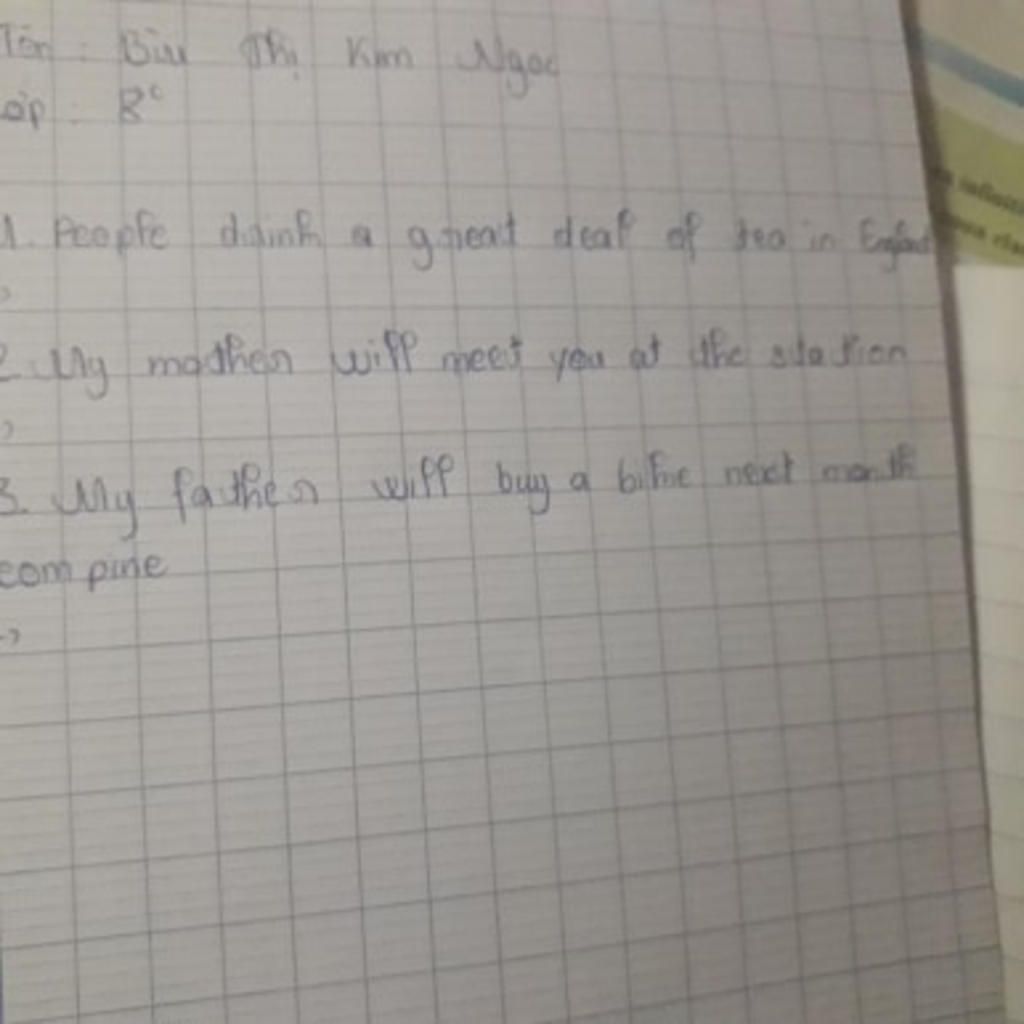 Tên : Bùi Thị Kim Ngọc
Lớp : 8c
1. People drink a great deal of tea in England
->
2. My mother will meet you at the station
->
3. My father will buy a bike next month
com pine
->